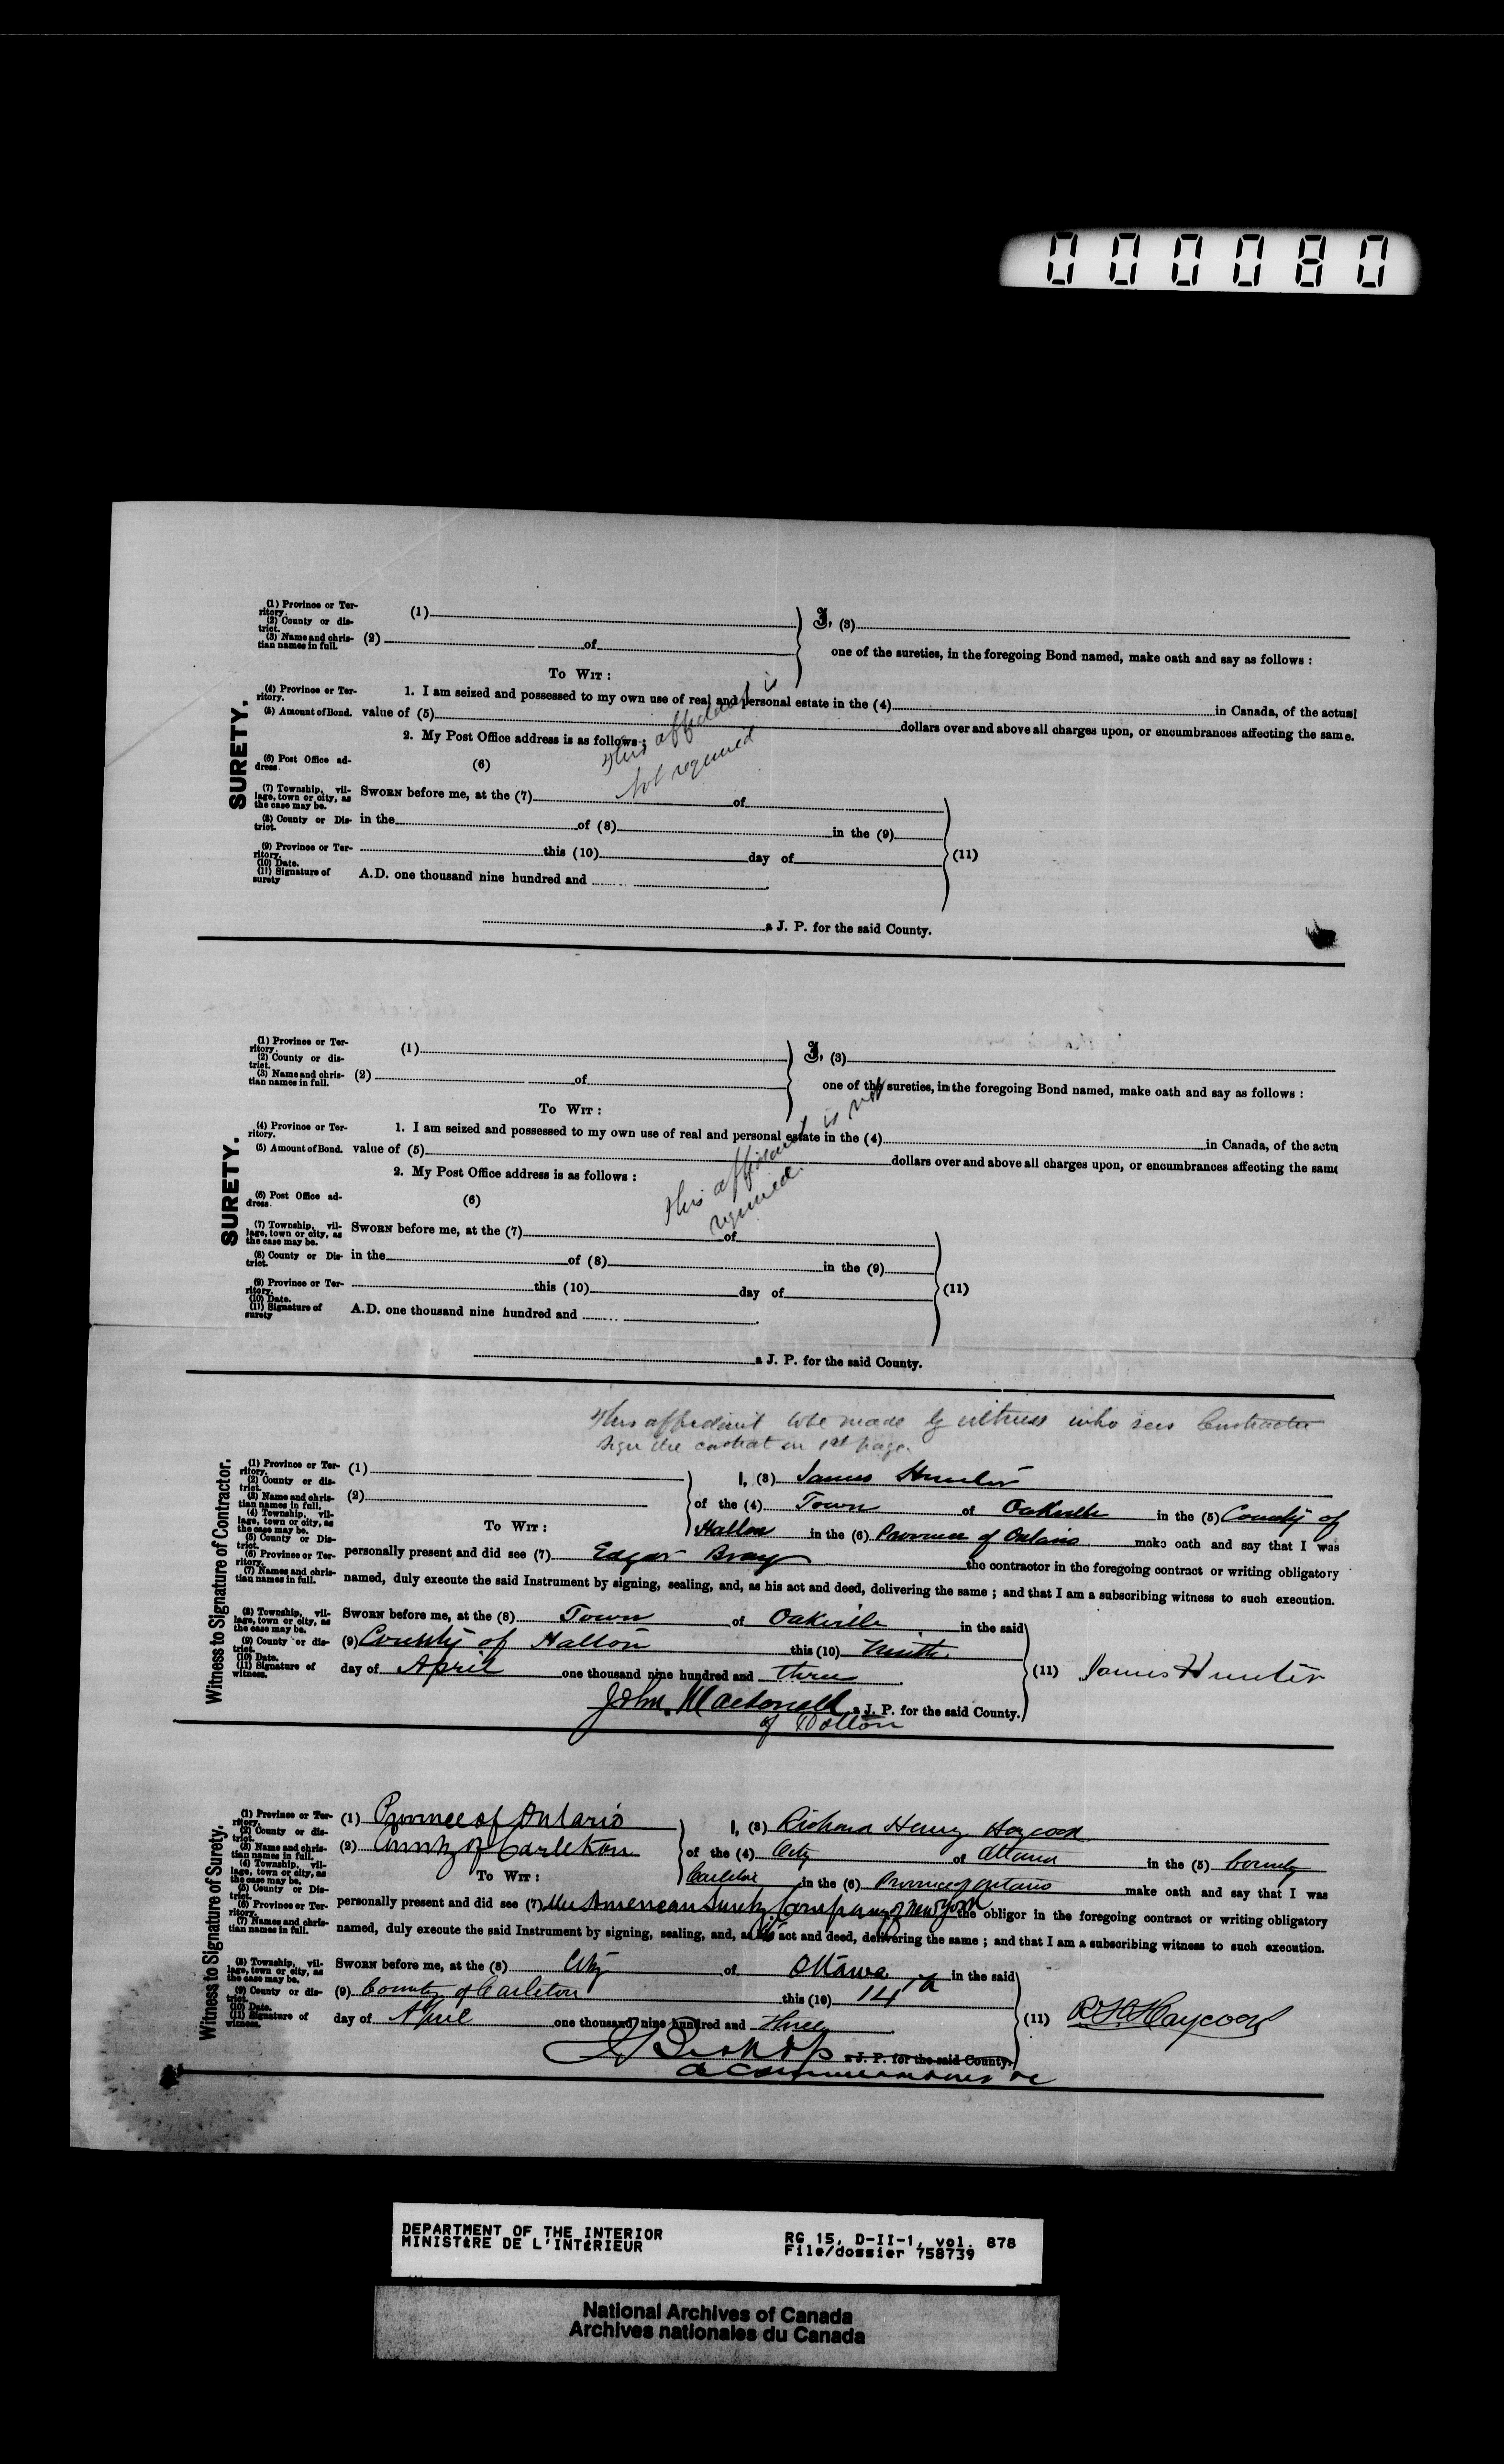 000080
(1) Province or Ter-
ritory.
(2) County or dis-
trict.
(3) Name and chris-
tian names in full.
(1)
(2) of
To Wit :
I, (3)
one of the sureties, in the foregoing Bond named, make oath and say as follows :
SURETY.
(4) Province or Ter-
ritory.
1. I am seized and possessed to my own use of real and personal estate in the (4) in Canada, of the actual
(5) Amount of Bond. value of (5) dollars over and above all charges upon, or encumbrances affecting the same.
2. My Post Office address is as follows :
This affidavit is
not required
(6) Post Office ad-
dress.
(6)
(7) Township, vil-
lage, town or city, as
the case may be.
Sworn before me, at the (7) of
(8) County or Dis-
trict.
in the of (8) in the (9)
(9) Province or Ter-
ritory.
(10) Date.
(11) Signature of
surety
this (10) day of (11)
A.D. one thousand nine hundred and
a J. P. for the said County.
(1) Province or Ter-
ritory.
(2) County or dis-
trict.
(3) Name and chris-
tian names in full.
(1)
(2) of
To Wit :
I, (3)
one of the sureties, in the foregoing Bond named, make oath and say as follows :
SURETY.
(4) Province or Ter-
ritory.
1. I am seized and possessed to my own use of real and personal estate in the (4) in Canada, of the actu
(5) Amount of Bond. value of (5) dollars over and above all charges upon, or encumbrances affecting the same
2. My Post Office address is as follows :
This affidavit is not
required.
(6) Post Office ad-
dress.
(6)
(7) Township, vil-
lage, town or city, as
the case may be.
Sworn before me, at the (7) of
(8) County or Dis-
trict.
in the of (8) in the (9)
(9) Province or Ter-
ritory.
(10) Date.
(11) Signature of
surety
this (10) day of (11)
A.D. one thousand nine hundred and
a J. P. for the said County.
This affidavit to be made by witness who sees Contractor
sign the contract on 1st page.
Witness to Signature of Contractor.
(1) Province or Ter-
ritory.
(2) County or dis-
trict.
(3) Name and chris-
tian names in full.
(4) Township, vil-
lage, town or city, as
the case may be.
(5) County or Dis-
trict.
(6) Province or Ter-
ritory.
(7) Names and chris-
tian names in full.
(1)
(2)
To Wit :
I, (3) James Hunter
of the (4) Town of Oakville in the (5) County of
Halton in the (6) Province of Ontario make oath and say that I was
personally present and did see (7) Edgar Bray the contractor in the foregoing contract or writing obligatory
named, duly execute the said Instrument by signing, sealing, and, as his act and deed, delivering the same ; and that I am a subscribing witness to such execution.
(8) Township, vil-
lage, town or city, as
the case may be.
(9) County or dis-
trict.
(10) Date.
(11) Signature of
witness.
Sworn before me, at the (8) Town of Oakville in the said
(9) County of Halton this (10) Ninth
day of April one thousand nine hundred and three
(11) James Hunter
John Macdonald a J. P. for the said County.
of Halton
Witness to Signature of Surety.
(1) Province or Ter-
ritory.
(2) County or dis-
trict.
(3) Name and chris-
tian names in full.
(4) Township, vil-
lage, town or city, as
the case may be.
(5) County or Dis-
trict.
(6) Province or Ter-
ritory.
(7) Names and chris-
tian names in full.
(1) Province of Ontario
(2) County of Carleton
To Wit :
I, (3) Richard Henry Haycock
of the (4) City of Ottawa in the (5) County
Carleton in the (6) Province of Ontario make oath and say that I was
personally present and did see (7) the American Surety Company of New York the obligor in the foregoing contract or writing obligatory
named, duly execute the said Instrument by signing, sealing, and, as its act and deed, delivering the same ; and that I am a subscribing witness to such execution.
(8) Township, vil-
lage, town or city, as
the case may be.
(9) County or dis-
trict.
(10) Date.
(11) Signature of
witness.
Sworn before me, at the (8) City of Ottawa in the said
(9) County of Carleton this (10) 14th
day of April one thousand nine hundred and Three
(11) R H Haycock
Bishop a J. P. for the said County.
a Commissioner &c
DEPARTMENT OF THE INTERIOR
MINISTÈRE DE L'INTÉRIEUR
RG 15, D-II-1, vol. 878
File/dossier 758739
National Archives of Canada
Archives nationales du Canada